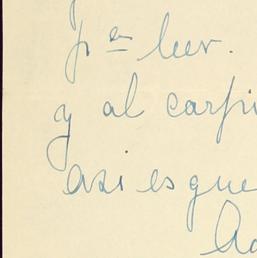 pª leer.
y al carpi
asi es que